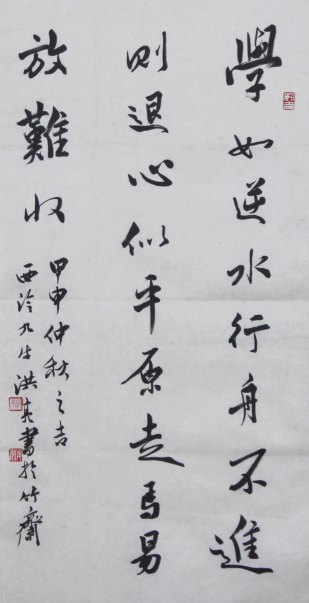 學如逆水行舟不進
則退心似平原走馬易
放難收
甲申仲秋之吉
西泠九生洪亮書於竹齋